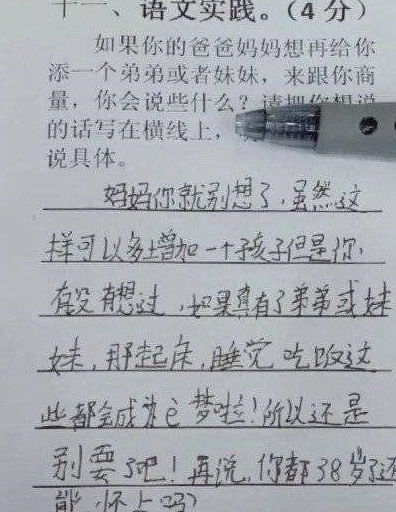 十一、语文实践。(4分)
如果你的爸爸妈妈想再给你
添一个弟弟或者妹妹，来跟你商
量，你会说些什么？请把你想说
的话写在横线上，
说具体。
妈妈你就别想了，虽然这
样可以多增加一个孩子但是你，
有没有想过，如果真有了弟弟或妹
妹，那起床，睡觉 吃饭这
些都会成为它梦啦！所以还是
别要了吧！再说，你都38岁了还
能 怀上吗？